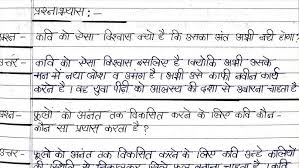 प्रश्नाभ्यास : —
प्रश्न - कवि को ऐसा विश्वास क्यों है कि उसका अंत अभी नहीं होगा?
उत्तर - कवि को ऐसा विश्वास इसलिए है क्योंकि अभी उसके
मन में नया जोश व उमंग है। अभी उसे काफी नवीन कार्य
करने है। वह युवा पीढ़ी को आलस्य की दशा से उबारना चाहता है
प्रश्न - फूलों को अनंत तक विकसित करने के लिए कवि कौन-
कौन सा प्रयास करता है?
उत्तर - फूलों को अनंत तक विकसित करने के लिए कवि उन्हें कलियों
की स्थिति से निकालकर खिले फूल बनाना चाहता है।